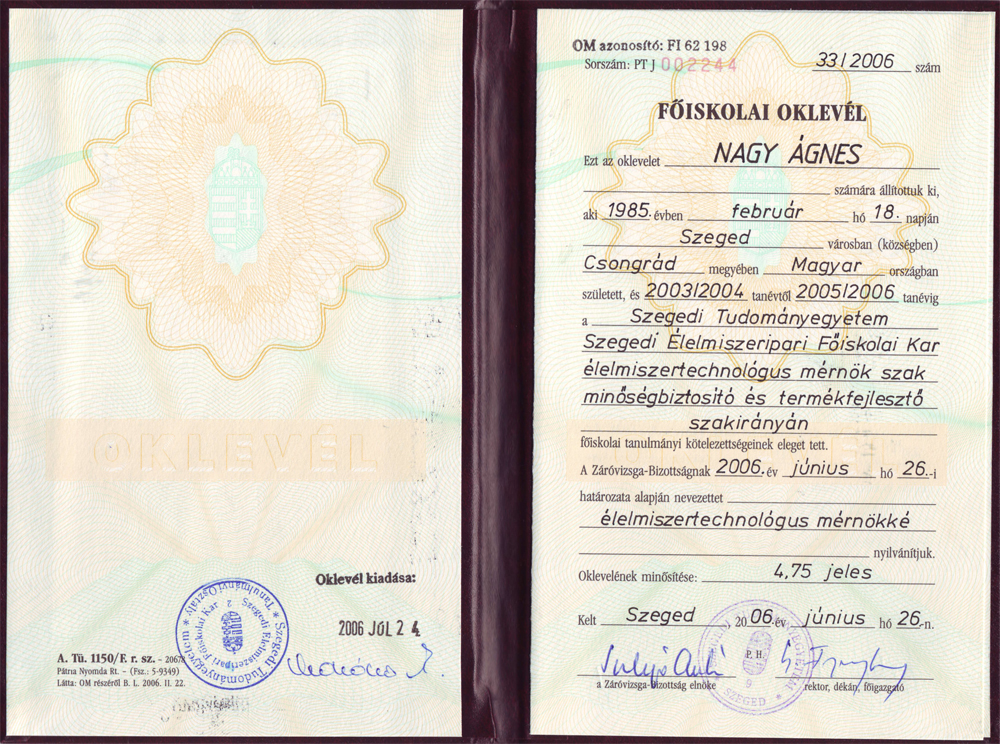 OKLEVÉL
Oklevél kiadása:
2006 JÚL 2 4.
A. Tü. 1150/F. r. sz. – 2067
Pátria Nyomda Rt. – (Fsz.: 5-9349)
Látta: OM részéről B. L. 2006. II. 22.
Szegedi Tudományegyetem * Szegedi Élelmiszeripari Főiskolai Kar 2
Tanulmányi Osztály *
OM azonosító: FI 62 198
Sorszám: PT J 002244
33/2006 szám
FŐISKOLAI OKLEVÉL
Ezt az oklevelet NAGY ÁGNES
számára állítottuk ki,
aki 1985. évben február hó 18. napján
Szeged városban (községben)
Csongrád megyében Magyar országban
született, és 2003/2004 tanévtől 2005/2006 tanévig
a Szegedi Tudományegyetem
Szegedi Élelmiszeripari Főiskolai Kar
élelmiszertechnológus mérnök szak
minőségbiztosító és termékfejlesztő
szakirányán
főiskolai tanulmányi kötelezettségeinek eleget tett.
A Záróvizsga-Bizottságnak 2006. év június hó 26.-i
határozata alapján nevezettet
élelmiszertechnológus mérnökké
nyilvánítjuk.
Oklevelének minősítése: 4,75 jeles
Kelt Szeged, 2006. év június hó 26-n.
P. H.
SZEGED
a Záróvizsga-bizottság elnöke
rektor, dékán, főigazgató